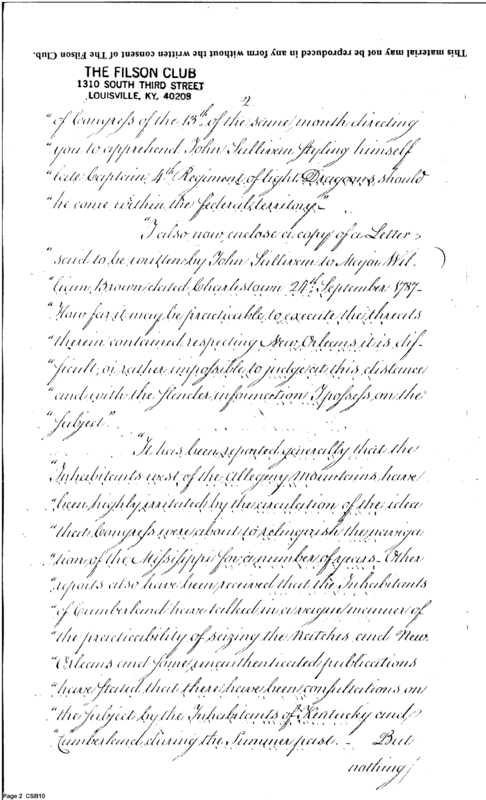 This material may not be reproduced in any form without the written consent of The Filson Club.
THE FILSON CLUB
1310 SOUTH THIRD STREET
LOUISVILLE, KY. 40208
2
"of Congress of the 13th of the same month directing
"you to apprehend John Sullivan styling himself
"late Captain 4th Regiment of light Dragoons, should
"he come within the federal territory."
"I also now enclose a copy of a Letter
"said to be written by John Sullivan to Major Wil-
"liam Brown dated Charlestown 24th September 1787—
"How far it may be practicable to execute the threats
"therein contained respecting New Orleans it is dif-
"ficult, or rather impossible to judge at this distance
"and with the slender information I possess on the
"subject".
"It has been reported generally that the
"Inhabitants west of the Allegeny Mountains have
"been highly irritated by the circulation of the idea
"that Congress were about to relinquish the naviga
"tion of the Missisippi for a number of years. Other
"reports also have been received that the Inhabitants
"of Cumberland have talked in a vague manner of
"the practicability of seizing the Natches and New
"Orleans and some unauthenticated publications
"have stated that there have been consultations on
"the subject by the Inhabitants of Kentucky and
"Cumberland during the Summer past. — But
nothing
Page 2 CSB10